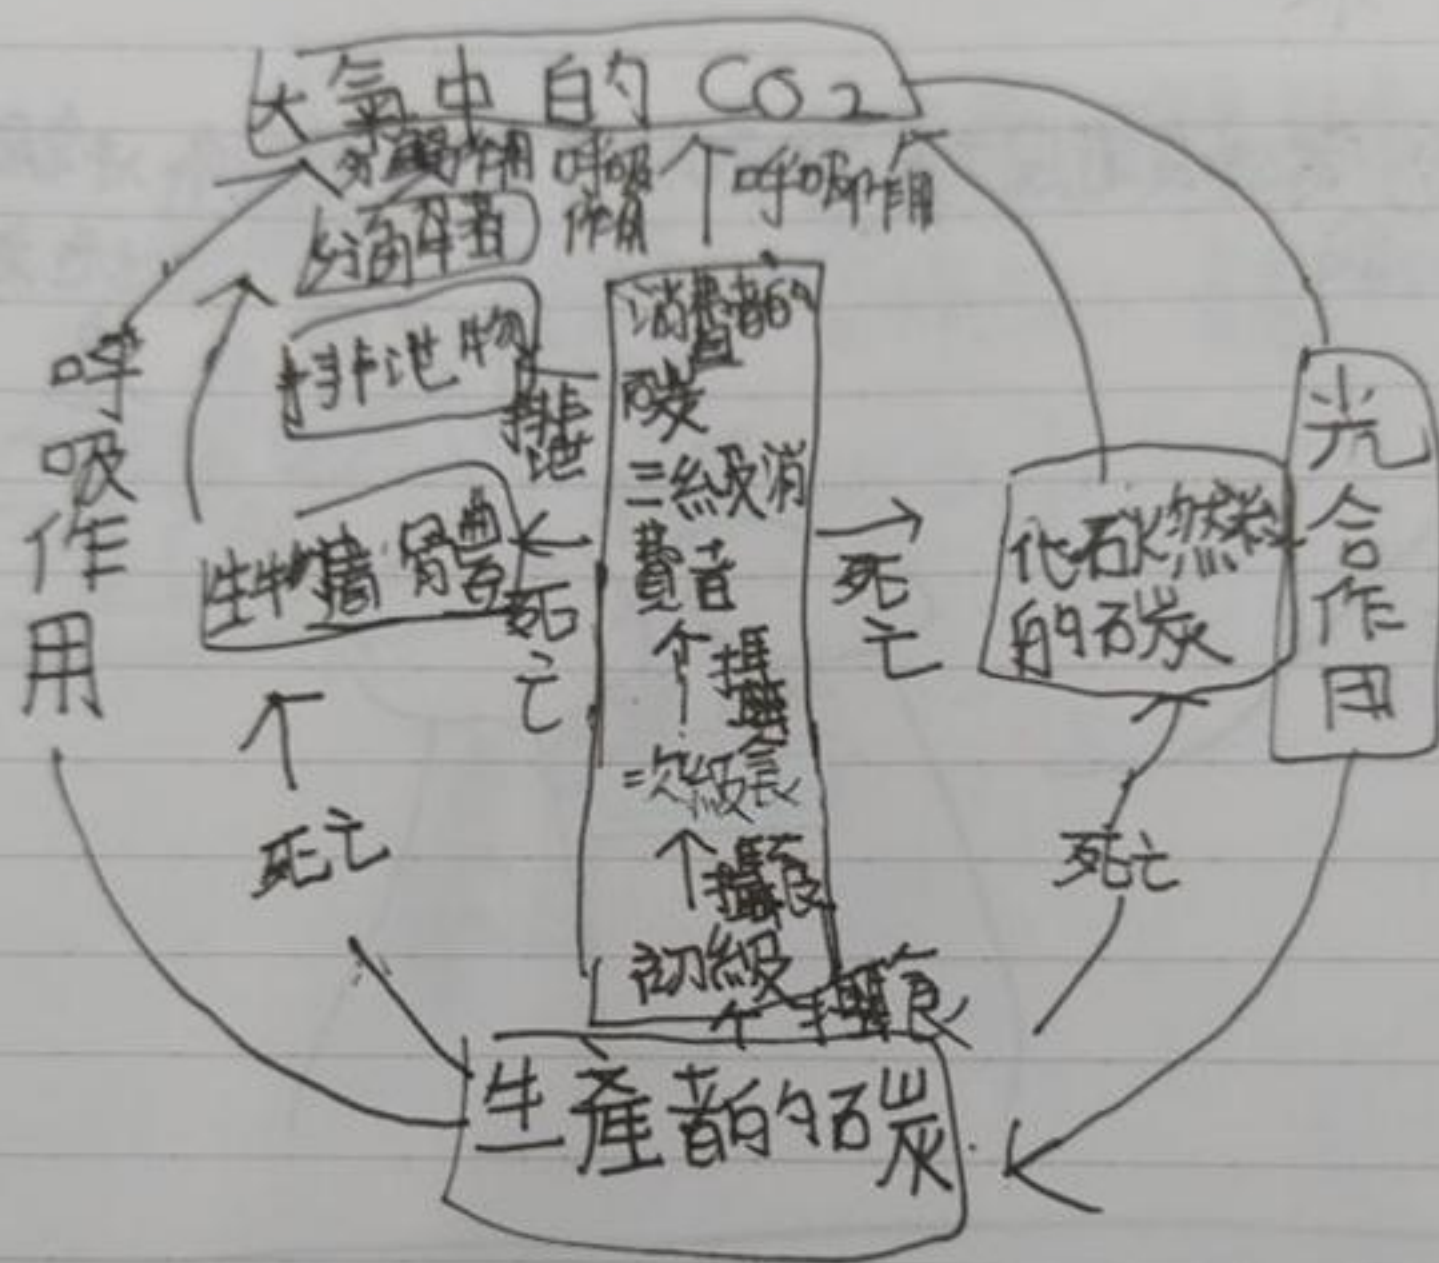 大氣中的CO2
分解作用
呼吸
作用
呼吸作用
分解者
排泄物
排
泄
呼
吸
作
用
消費者的
碳
三級消
費者
攝
食
二次級
攝食
初級
攝食
死
亡
死
亡
化石燃料
的碳
光
合
作
用
死亡
死亡
生產者的碳